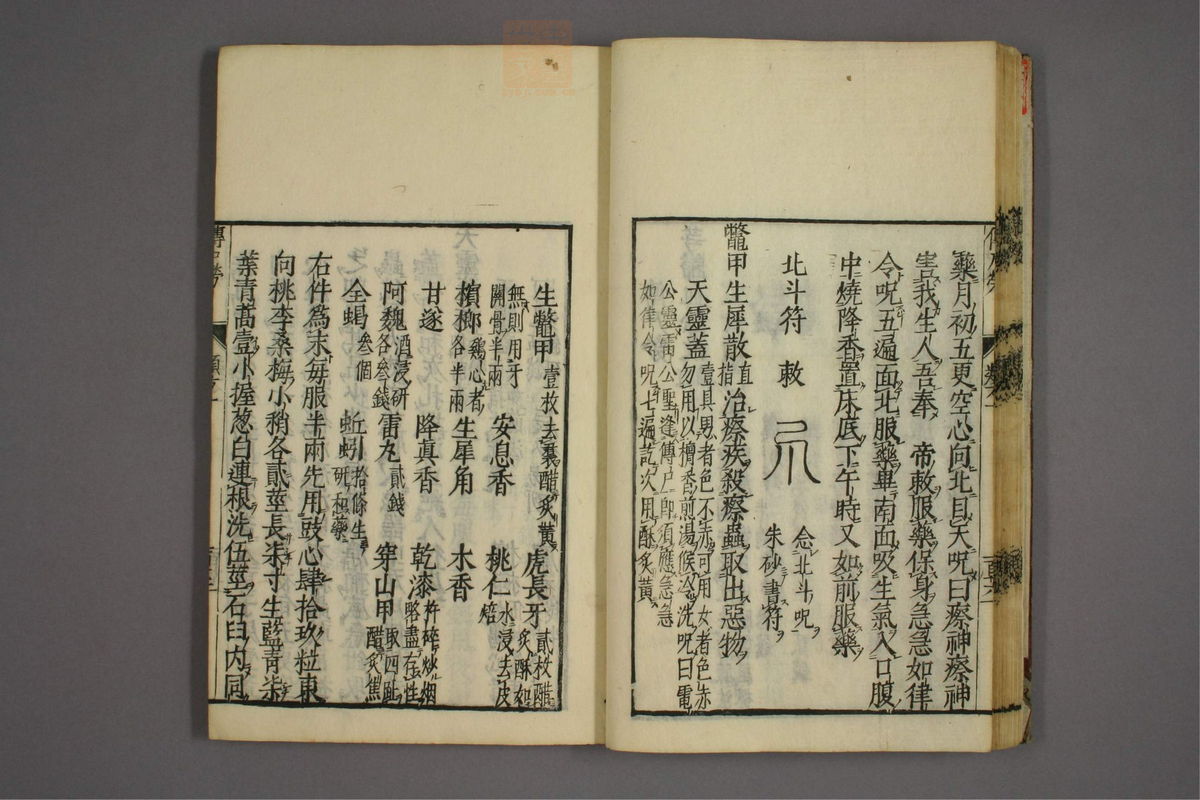 藥月初五更空心向北目天呪曰瘵神瘵神
害我生人吾奉　帝敕服藥保身急急如律
令呪五遍面北服藥畢南面吸生氣入口腹
中燒降香置床底下午時又如前服藥
北斗符　敕　念北斗呪
朱砂書符
鼈甲生犀散直指治瘵疾殺瘵蟲取出惡物
天靈蓋壹具男者色不赤可用女者色赤
勿用以檀香煎湯候冷洗呪曰電
公靈雷公聖逢傳尸即須應急急
如律令呪七遍訖次用酥炙黃
生鼈甲壹枚去裙醋炙黃
無則用牙
關骨半兩
虎長牙貳枚醋
炙酥如
安息香　桃仁水浸去皮
焙
檳榔雞心者
各半兩　生犀角　木香
甘遂　降真香　乾漆杵碎炒烟
略盡存性
阿魏酒浸研
各叁錢　雷丸貳錢　穿山甲取四趾
醋炙焦
全蝎叁個　蚯蚓拾條生
研和藥
右件爲末每服半兩先用豉心肆拾玖粒東
向桃李桑梅小稍各貳莖長柒寸生藍青柒
葉青蒿壹小握葱白連根洗伍莖石臼内同